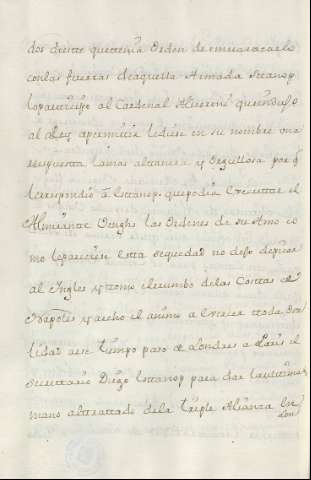 dos decirte que tenia Orden de embarazarlo
con las fuerzas de aquella Armada Stanop
lo participo al Cardenal Alveroni quien dispuso
al Rey a permitir le diese en su nombre una
respuesta la mas altanera y orgullosa por q
le respondio à Estanop que podia executar el
Almirante Benghs las Ordenes de su Amo co
mo le pareciese esta sequedad no dejo de picar
al Ingles y tomo el rumbo de las Costas de
Napoles y hecho el animo a
a este tiempo paso de Londres a Paris el
Secretario Diego Estanop para dar la ultima
mano al tratado de la triple Alianza En
Lon